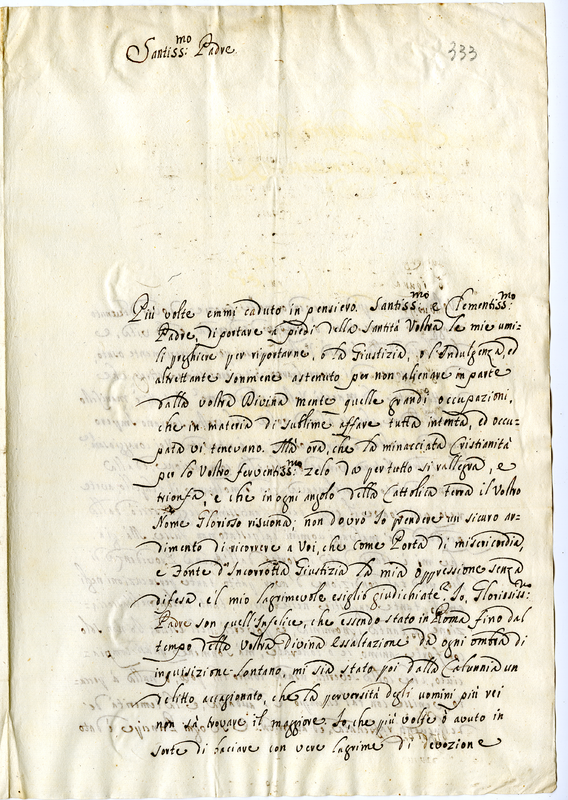 Santiss:mo Padre
333
Più volte emmi caduto in pensiero. Santiss:mo e Clementiss:mo
Padre, di portare a piedi della Santità Vostra le mie umi-
li preghiere per riportarne, o la Giustizia, o l'Indulgenza, ed
altrettante sonmene astenuto per non alienare in parte
dalla vostra Divina mente quelle grandi occupazioni,
che in materia di sublime affare tutta intenta, ed occu-
pata vi tenevano. Mà ora, che la minacciata Cristianità
per lo Vostro ferventiss:mo zelo da per tutto si rallegra, e
trionfa, e che in ogni angolo della Cattolica terra il Vostro
Nome Glorioso risuona, non dovrò Io prendere un sicuro ar-
dimento di ricorrere a Voi, che come Porta di misericordia,
e Fonte d'Incorrotta Giustizia la mia oppressione senza
difesa, e'l mio lagrimevole esiglio giudichiate? Io, Gloriosiss:mo
Padre son quell'Infelice, che essendo stato in Roma fino dal
tempo della Vostra Divina Essaltazione da ogni ombra di
inquisizione lontano, mi sia stato poi dalla Calunnia un
delitto accagionato, che la perversità degli uomini più rei
non sà trovare il maggiore. Io, che più volte ò avuto in
sorte di baciare con vere lagrime di devozione